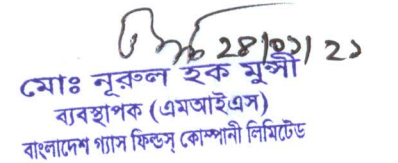 ২৪/০১/২১
মোঃ নূরুল হক মুন্সী
ব্যবস্থাপক (এমআইএস)
বাংলাদেশ গ্যাস ফিল্ডস্ কোম্পানী লিমিটেড